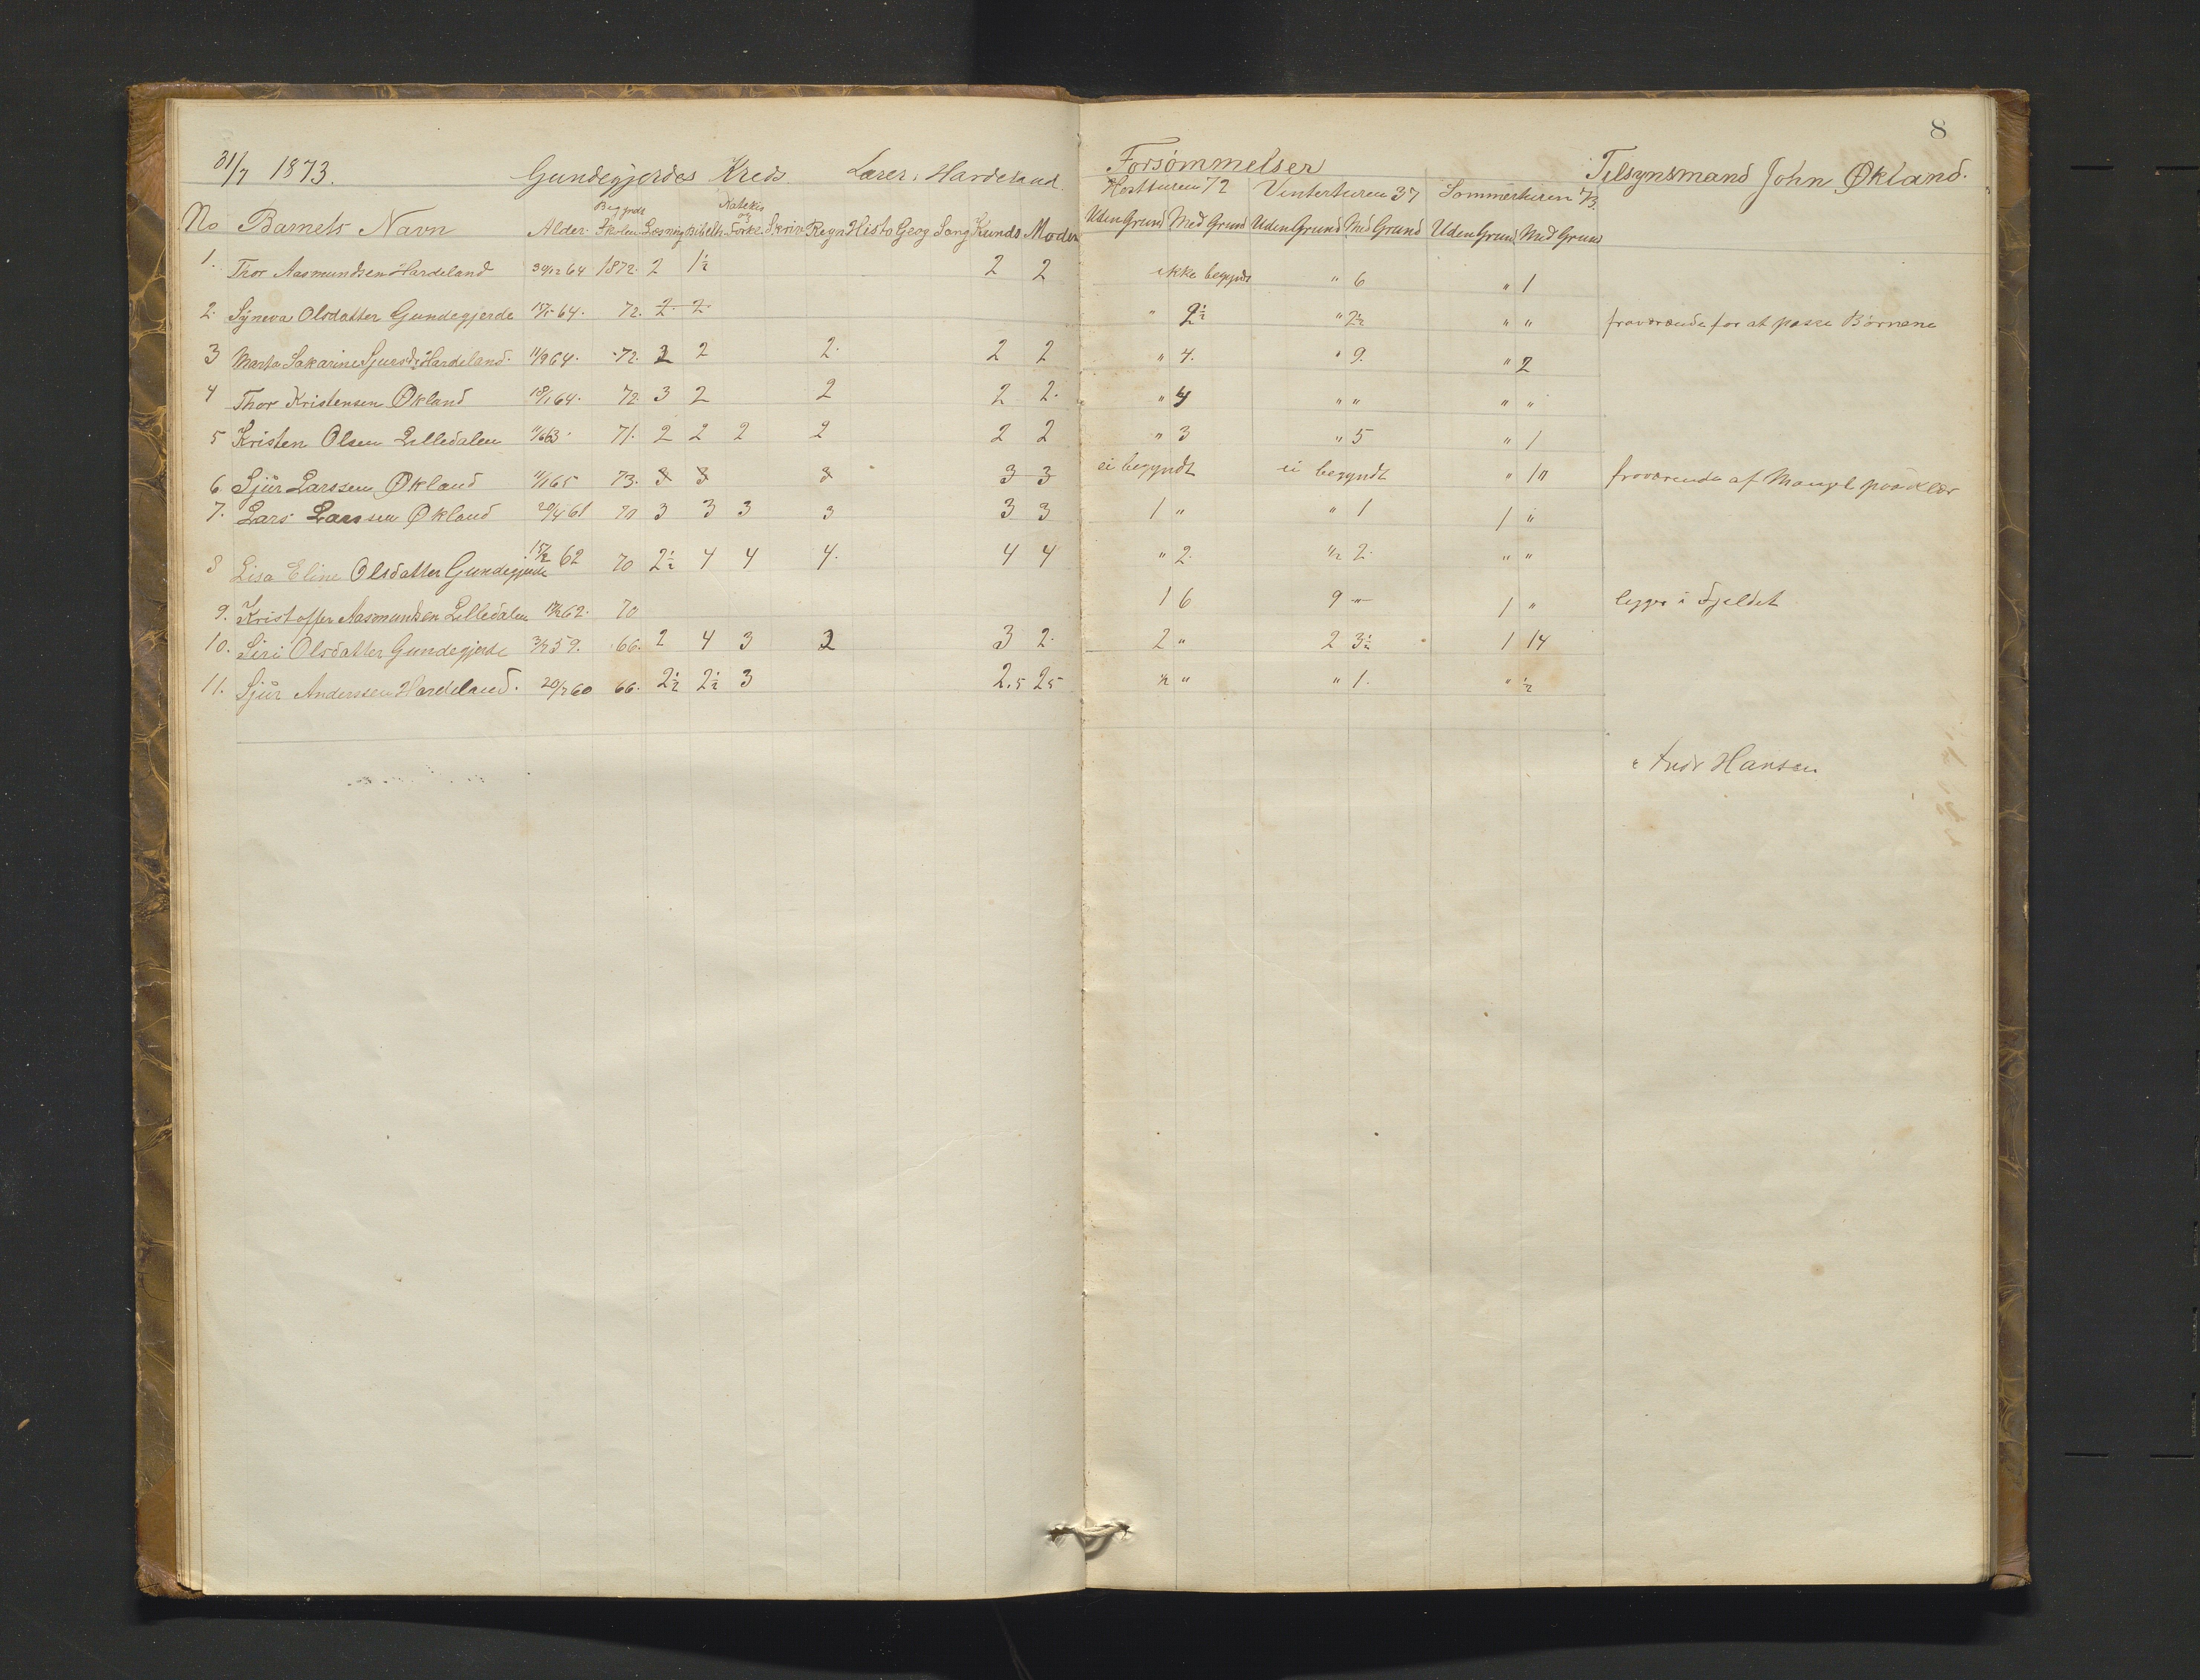 8
31/7 1873. Gundegjerdes Kreds. Lærer, Hardeland. Forsømmelser Tilsynsmand John Økland.
Høstturen 72 Vinterturen 37 Sommerturen 73.
No Barnets Navn Alder Begyndt Skolen Læsning Bibelh Katekis og Forkl. Skriv Regn Histo Geog Sang Kunds Moden Uden Grund Med Grund Uden Grund Med Grund Uden Grund Med Grund
1. Thor Aasmundsen Hardeland 30/12 64 1872. 2 1½ 2 2 ikke begyndt " 6 " 1
2. Syneva Olsdatter Gundegjerde 64. 72. 2. 2. " 2½ " 2½ " " fraværende for at passe Børnene
3 Marta Sakarine Sjursd. Hardeland. 11/9 64. 72. 2 2 2. 2 2 " 4. " 9. " 2
4 Thor Kristensen Økland 18/1 64. 72. 3 2 2 2 2. " 4 " " " "
5 Kristen Olsen Lilledalen 11/6 63. 71. 2 2 2 2 2 2 " 3 " 5 " 1
6. Sjur Larssen Økland 11/1 65 73. 3 3 3 3 3 ei begyndt ei begyndt " fraværende af Mangel paa Klær
7. Lars Larssen Økland 20/4 61 70 3 3 3 3 3 3 1 " " 1 1 "
8 Lisa Eline Olsdatter Gundegjerde 62 70 2½ 4 4 4. 4 4 " 2. 2. " "
9. Kristoffer Aasmundsen Lilledalen 62. 70 1 6 9 " 1 " ligger i Fjeldet
10. Siri Olsdatter Gundegjerde 59. 66. 2 4 3 2 3 2. 2 " 2 3½ 1 14
11. Sjur Anderssen Hardeland. 20/7 60 66. 2½ 2½ 3 2.5 25 ½ " " 1. " ½
Andr Hansen